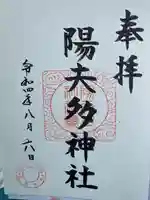 奉拝
陽夫多神社
令和四年八月六日